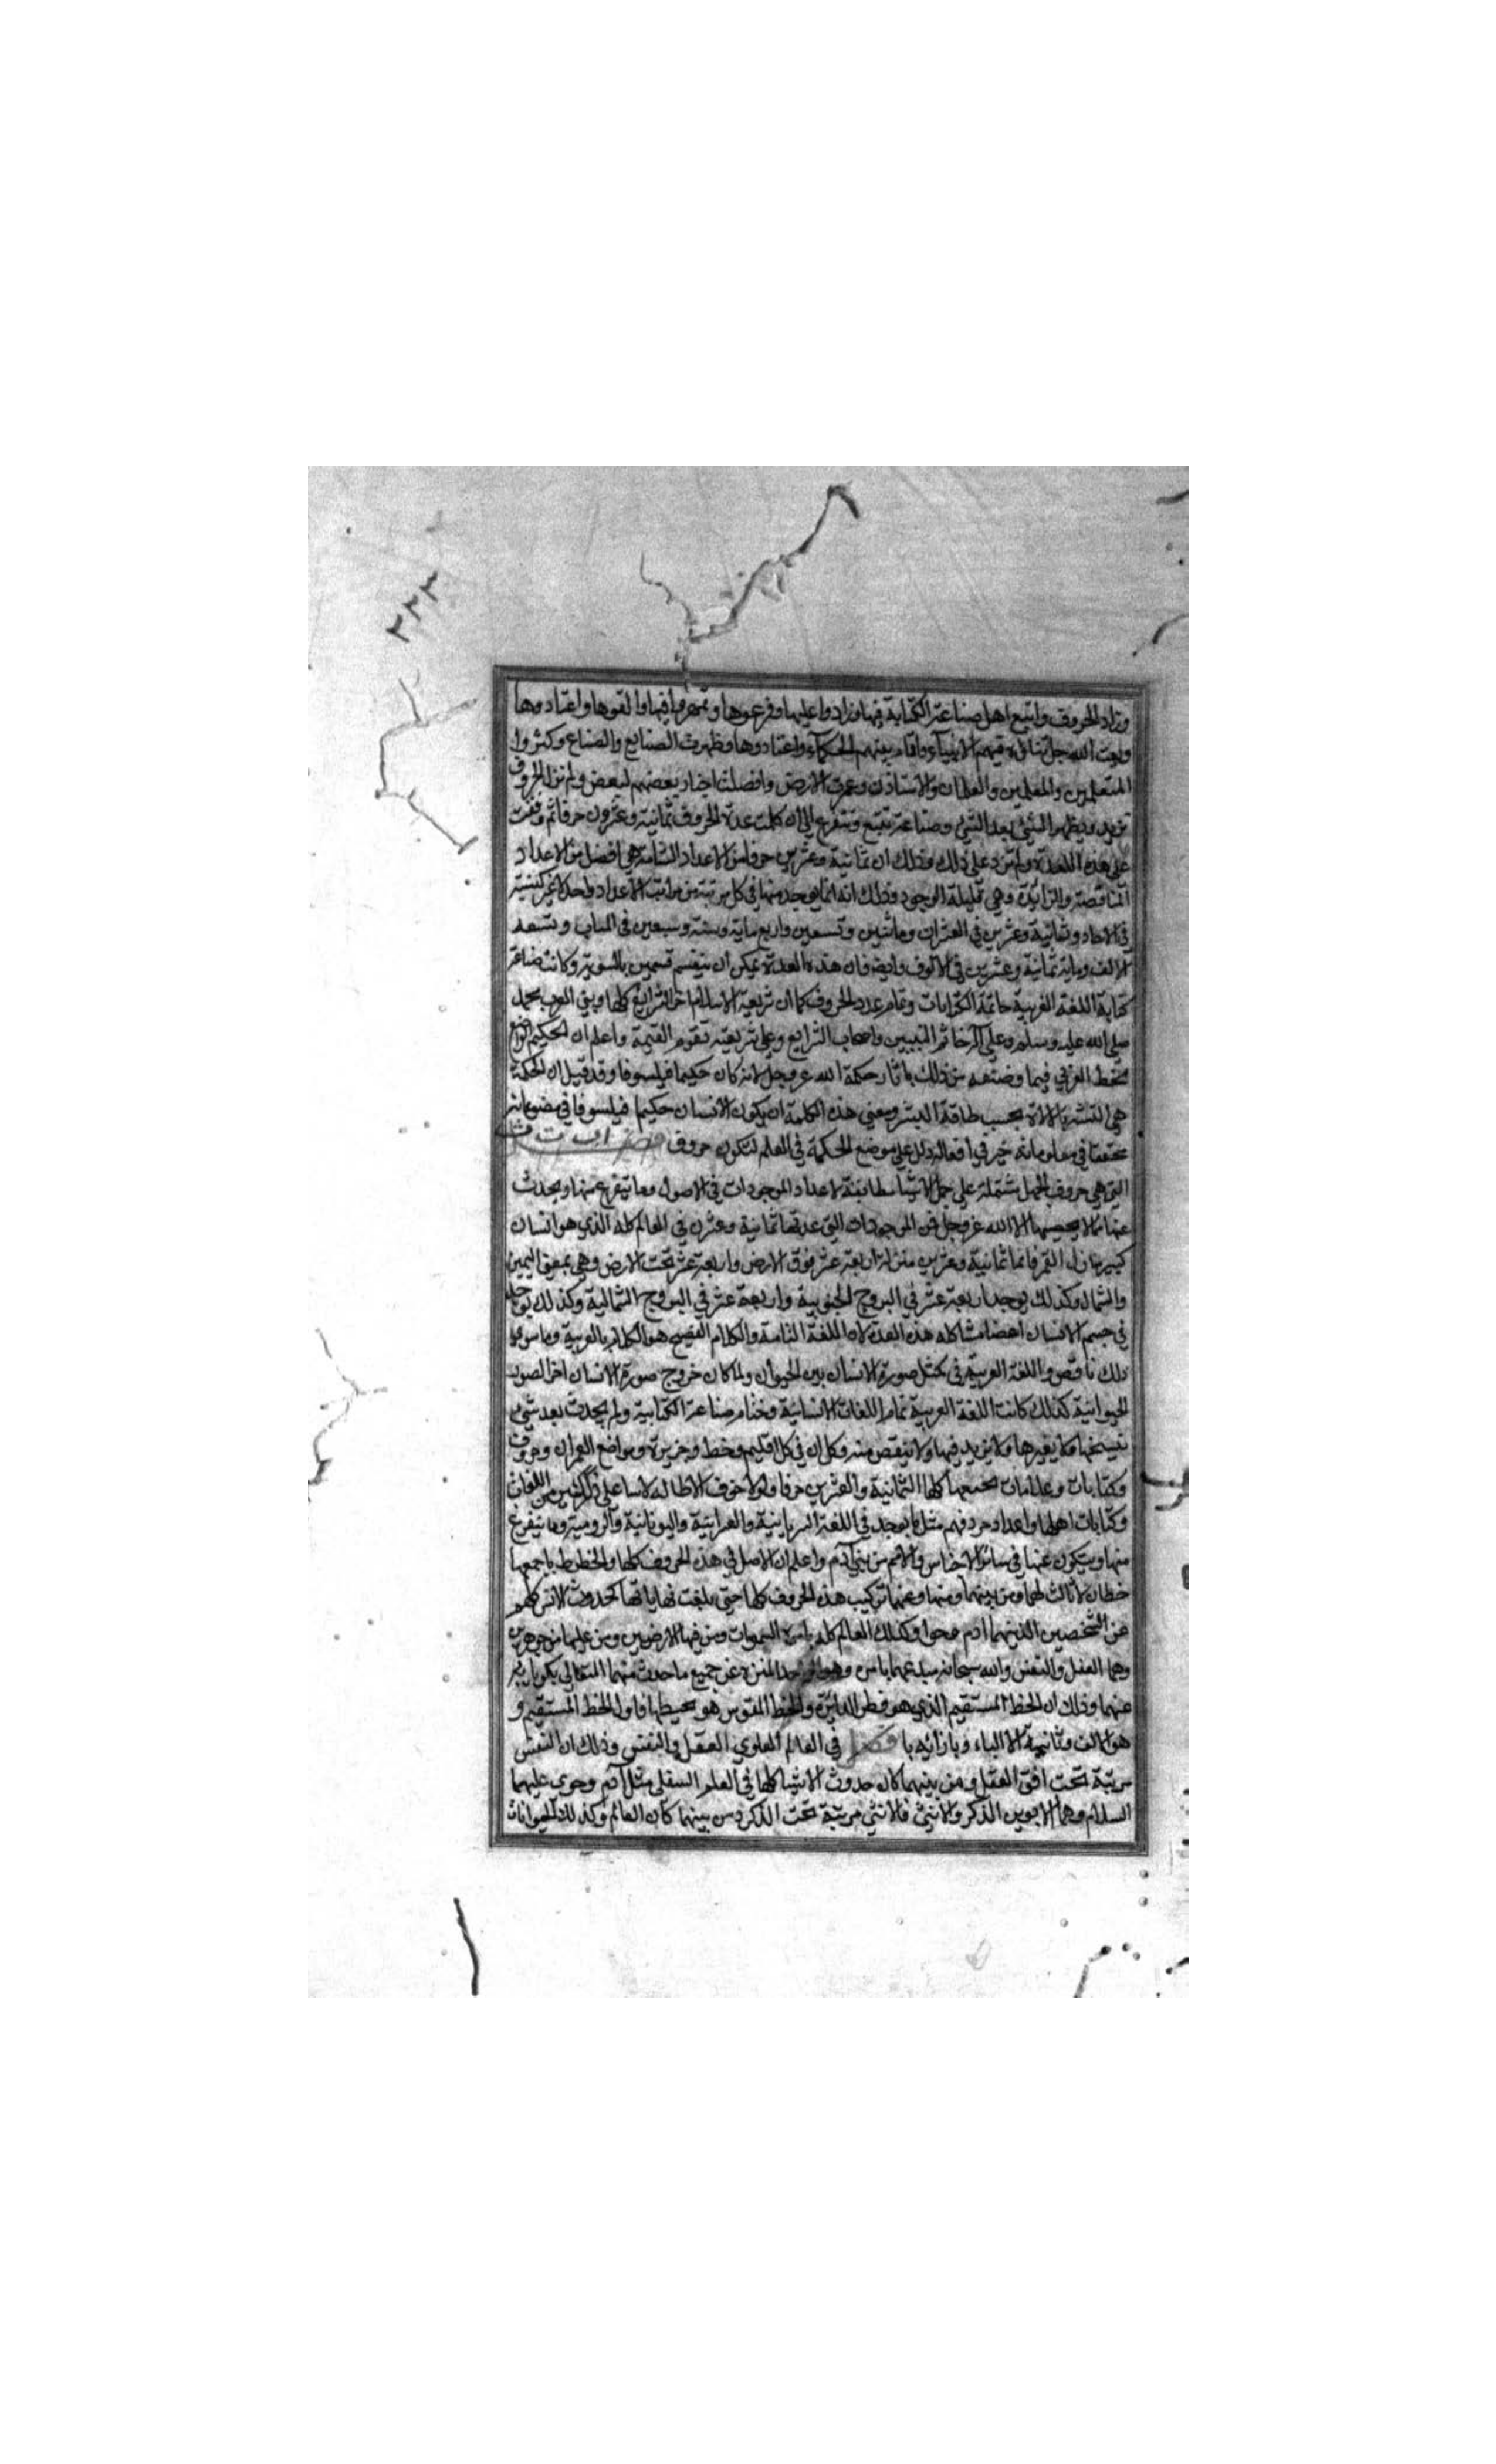 ٢٢٢
وزاد الحروف واتبع اهل صناعة الكتابة فيها وزادوا عليها وفرعوها وتمهروا فيها والقوها واعتادوها
وبعث الله جل ثناؤه فيهم الانبيآء واقام بينهم الحكمآء واعتادوها وظهرت الصنايع والصناع وكثروا
المتعلمين والمعلمين والعلمان والاستاذن وعمرت الارض وافضلت اخبار بعضهم لبعض ولم تزل الحروف
تزيد ويظهر الشئ بعد الشئ وصناعة تتبع وتتفرع الى ان كملت عدة الحروف ثمانية وعشرون حرفا ثم وقفت
على هذه العدة ولم تزد على ذلك وذلك ان ثمانية وعشرين حرفا من الاعداد التامة هي افضل من الاعداد
الناقصة والزائدة وهي قليلة الوجود وذلك انه انما يوجد منها في كل مرتبة من مراتب الاعداد واحد لا غير كستة
في الاحاد وثمانية وعشرين في العشرات ومائتين وتسعين واربع ماية وستة وسبعين في المياب وتسعه
الالف وماية ثمانية وعشرين في الالوف وايضا فان هذه العدة يمكن ان ينقسم قسمين بالسوية وكانت صناعة
كتابة اللغة العربية خاتمة الكتابات وتمام عدد الحروف كما ان شريعة الاسلام اخر الشرايع كلها ونبي العرب محمد
صلى الله عليه وسلم وعلى آله خاتم النبيين واصحاب الشرايع وعلى شريعته تقوم القيمة واعلم ان الحكيم الواضع
للخط العربي فيما وضعه من ذلك باثار حكمة الله عز وجل لانه كان حكيما فيلسوفا وقد قيل ان الحكمة
هي التشبه بالالاة بحسب طاقة البشر ومعني هذه الكلمة ان يكون الانسان حكيما فيلسوفا في مصنوعاته
محققا في معلوماته خير في افعاله دل على موضع الحكمة في العلم لتكون حروف فصل اب ت ث
التي هي حروف الجمل مشتملة على جمل الاشياء مطابقة لاعداد الموجودات في الاصول وما يتفرع عنها ويحدث
عنها مما لا يحصيها الا الله عز وجل فمن الموجودات التي عدتها ثمانية وعشرن في العالم كله الذي هو انسان
كبير منازل القمر فانها ثمانية وعشرين منزلة اربعة عشر فوق الارض واربعة عشر تحت الارض وهي بمعنى اليمين
والشمال وكذلك يوجد اربعة عشر في البروج الجنوبية واربعة عشر في البروج الشمالية وكذلك يوجد
في جسم الانسان اعضا مشاكله هذه العدة لان اللغة التامة والكلام الفصيح هو الكلام بالعربية وما سوى
ذلك ناقص واللغة العربية في كمثل صورة الانسان بين الحيوان ولما كان خروج صورة الانسان اخر الصور
الحيوانية كذلك كانت اللغة العربية تمام اللغات الانسانية وختام صناعة الكتابية ولم يحدث بعد شئ
ينسخها ولا يغيرها ولا يزيد فيها ولا ينقص منه وكل ان في كل اقليم وخط وجزيرة ومواضع العمران وحروف
وكتابات وعلامات يجمعها كلها الثمانية والعشرين حرفا ولولا خوف الاطالة لاتينا على ذكر كثير من اللغات
وكتابات اهلها واعداد حروفهم مثل ما يوجد في اللغة السريانية والعبرانية واليونانية والرومية وما يتفرع
منها ويتكون عنها في سائر الاجناس والامم من بني آدم واعلم ان الاصل في هذه الحروف كلها والخطوط باجمعها
خطان لا ثالث لهما ومن بينهما ومنها وعنها تركيب هذه الحروف كلها حتى بلغت نهاياتها كحدوث الانس كلهم
عن الشخصين الذينهما ادم وحوا وكذلك العالم كله باسره السموات ومن فيها الارضين ومن عليها من جوهرين
وهما العقل والنفس والله سبحانه مبدعهما بامره وهو الواحد المنزه عن جميع ما حدث منهما المتعالي
عنهما وذلك ان الخط المستقيم الذي هو قطر الدائرة والخط المقوس هو محيطها فاول الخط المستقيم و
هو الالف وثانيه الالباء وبازائه با فصل في العالم العلوي العقل والنفس وذلك ان النفس
مرتبة تحت افق العقل ومن بينهما كان حدوث الاشيا كلها في العلم السفلي مثل آدم وحوى عليهما
السلام وهما الابوين الذكر والانثى فالانثى مرتبة تحت الذكر ومن بينهما كان العالم وكذلك الحيوانات